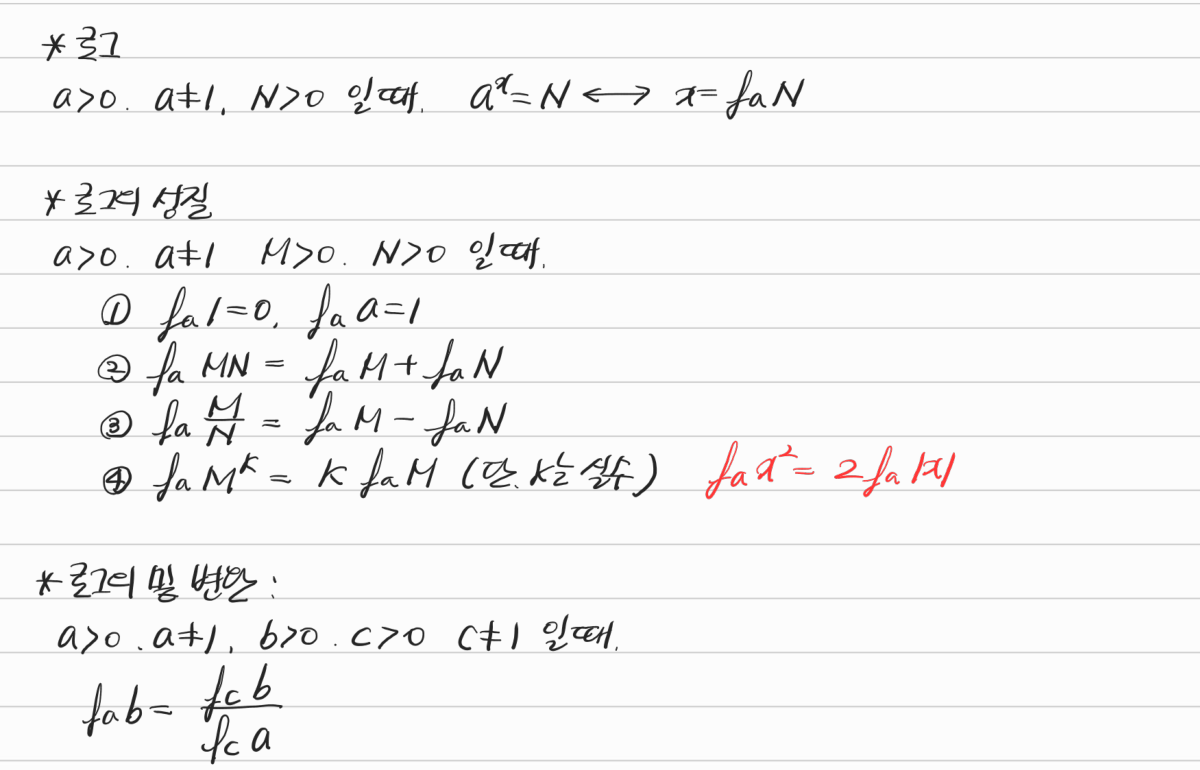 * 로그
a>0. a≠1, N>0 일때. aˣ=N ⟷ x=logₐN
* 로그의 성질
a>0. a≠1 M>0. N>0 일때.
① logₐ1=0, logₐa=1
② logₐMN = logₐM+logₐN
③ logₐM/N = logₐM-logₐN
④ logₐMᴷ = K logₐM (단. K는 실수) logₐx²= 2logₐ|x|
* 로그의 밑 변환:
a>0. a≠1, b>0. c>0 c≠1 일때.
logₐb= log_c b / log_c a